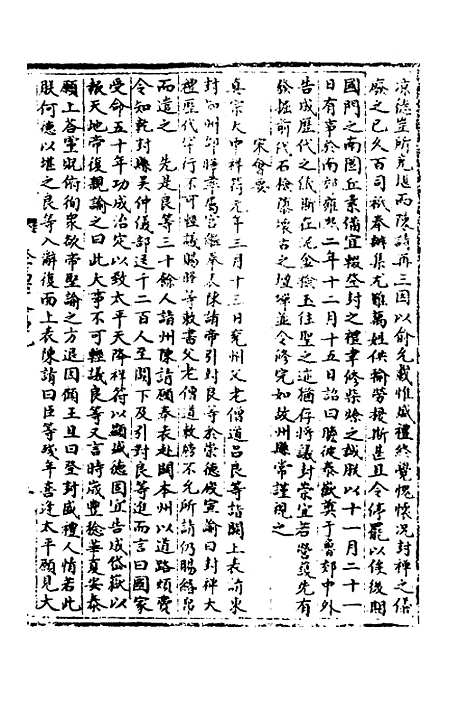 凉德豈所克堪而陳請再三因以俞允載惟盛禮終覺愧懷況封禪之儀
廢之已久百司祇奉辦集尤難萬姓供輸勞擾斯甚且令停罷以俟後期
國門之南圜丘素備宜輟登封之禮聿修柴燎之誠朕以十一月二十一
日有事於南郊雍熙二年十二月十五日詔曰瞻彼泰嶽奠于魯郊中外
告成歷代之儀斯在泥金檢玉往聖之迹猶存將議封崇宜若營葺先有
發掘前代石檢隳壞古之壇墠並令修完如故州縣常謹視之
宋會要
真宗大中祥符元年三月十三日兗州父老僧道呂良等詣闕上表請東
封知州邵曄率屬官繼奉表陳請帝引對良等於崇德殿宣諭曰封禪大
禮歷代罕行不可輕議賜曄等敕書父老僧道敕牓不允所請仍賜緡帛
而遣之 先是良等三十餘人詣州陳請願奉表赴闕本州以道路煩費
令知乾封縣吳仲儀部送千二百人至闕下及引對良等進而言曰國家
受命五十年功成治定以致太平天降祥符以顯盛德固宜告成岱嶽以
報天地帝復親諭之曰此大事不可輕議良等又言時歲豐稔華夏安泰
願上答靈貺俯徇衆欲帝堅諭之方退因顧王旦曰登封盛禮人情若此
朕何德以堪之良等入辭復而上表陳請曰臣等殘年喜逢太平願見大